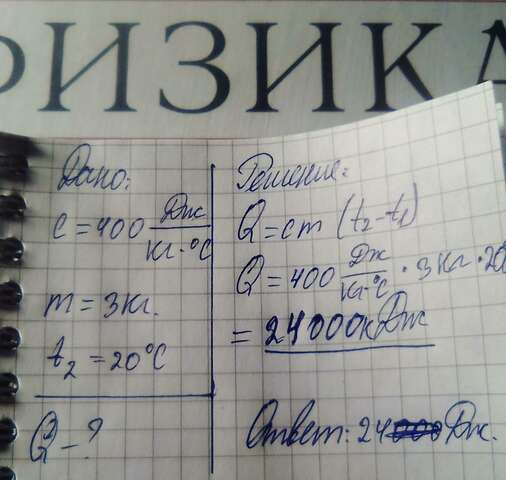 ФИЗИКА
Дано:
c = 400 Дж/кг·°C
m = 3кг.
t₂ = 20°C
Q - ?
Решение:
Q = cm (t₂ - t₁)
Q = 400 Дж/кг·°C · 3кг · 20
= 24000кДж
Ответ: 24 Дж.